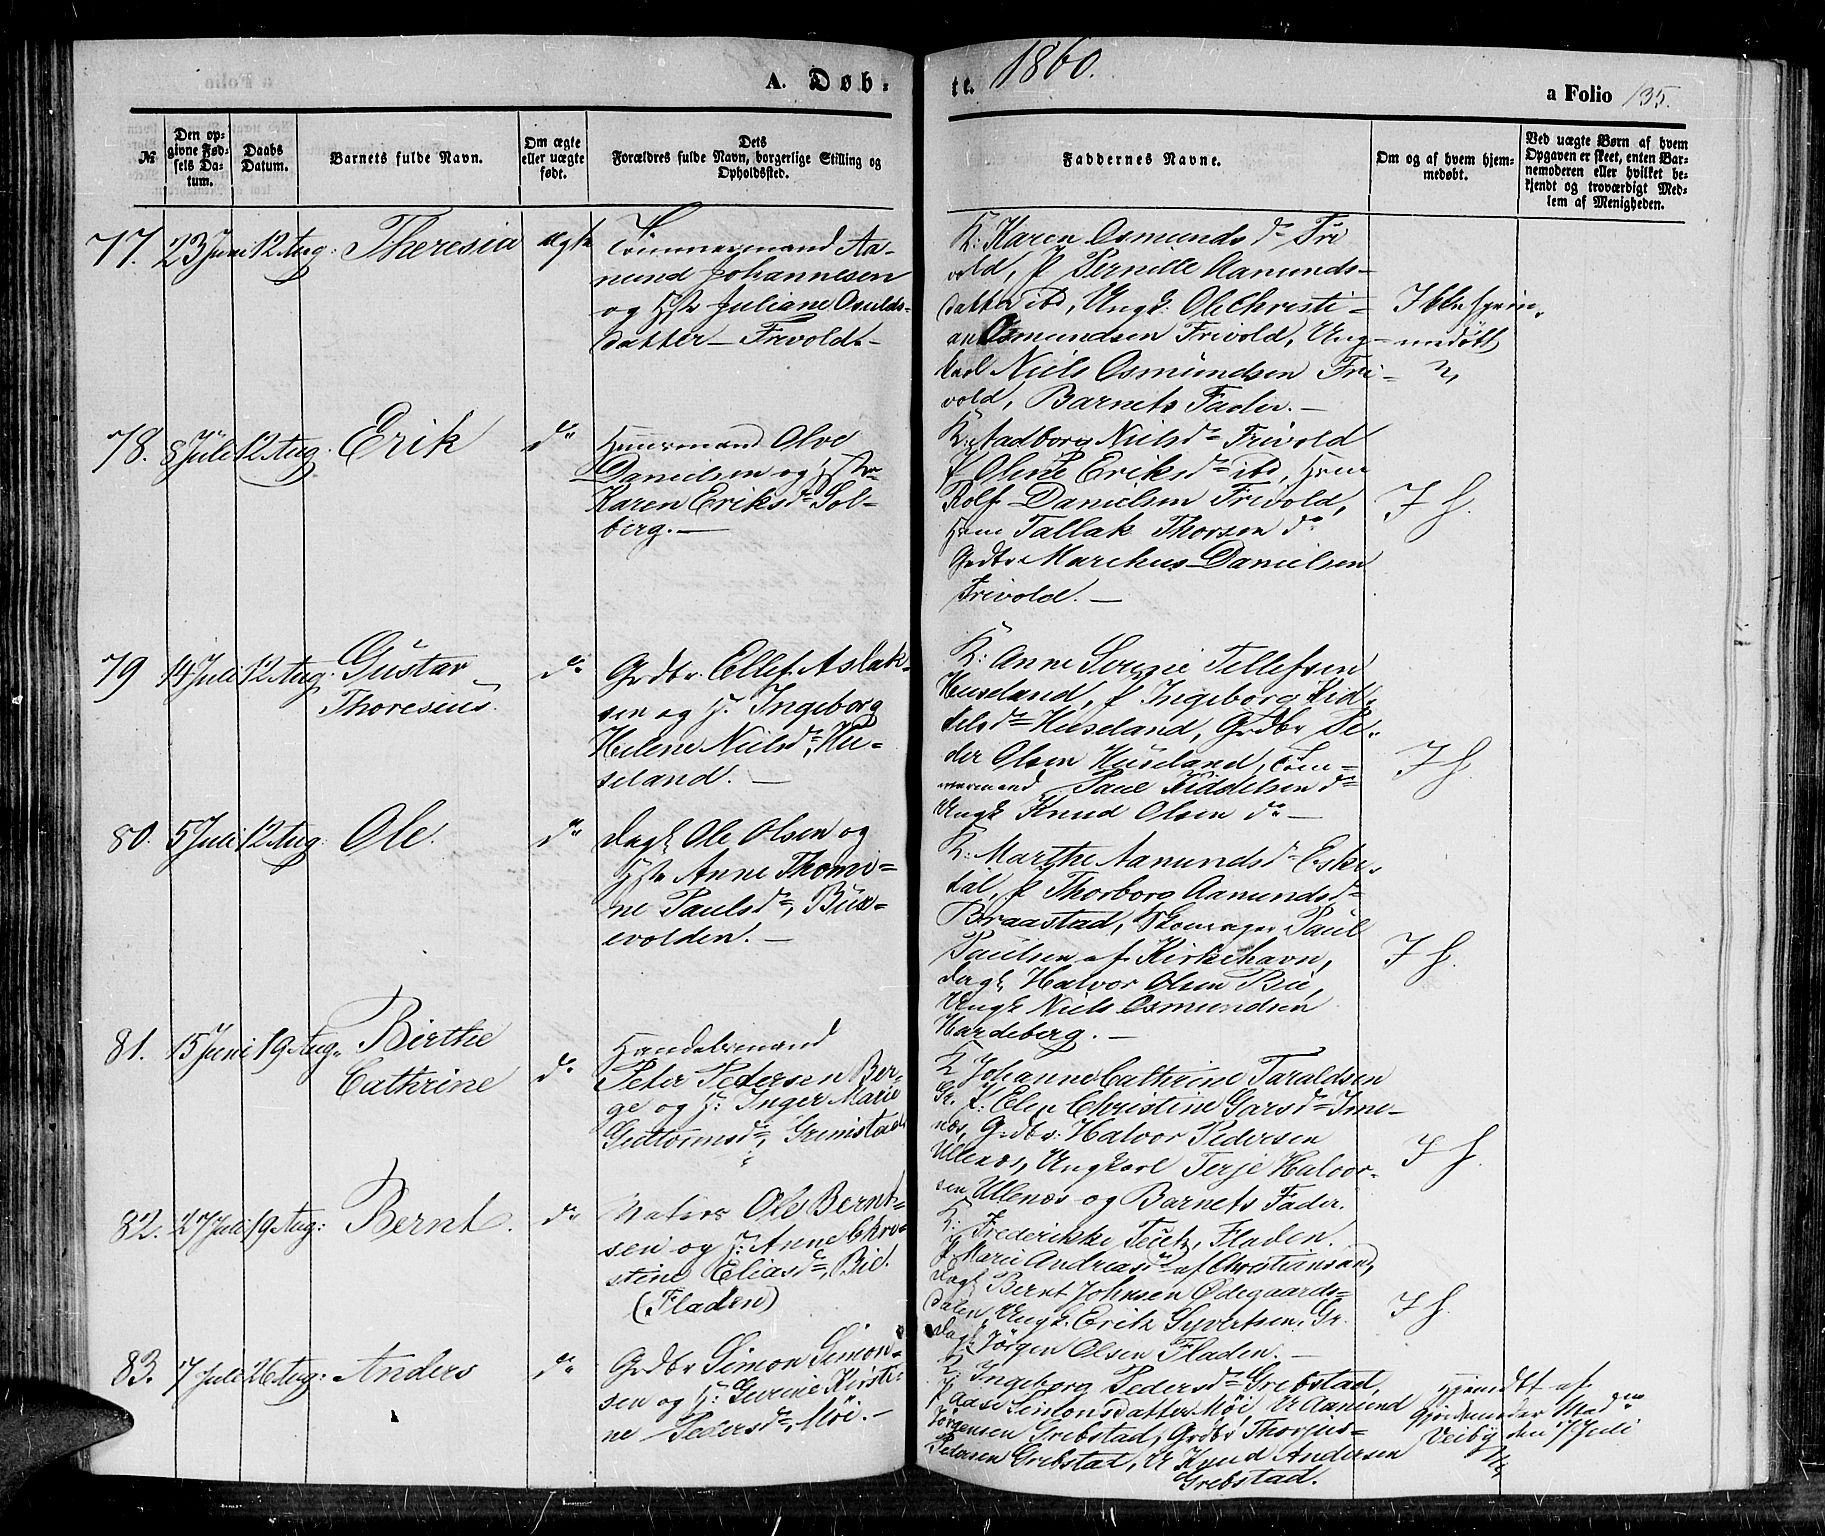 A. Døb=
te. 1860.
a Folio 135.
№
Den op=
givne Fød=
sels Da=
tum.
Daabs
Datum.
Barnets fulde Navn.
Om ægte
eller uægte
født.
Dets
Forældres fulde Navn, borgerlige Stilling og
Opholdssted.
Faddernes Navne.
Om og af hvem hjem=
medøbt.
Ved uægte Børn af hvem
Opgaven er skeet, enten Bar=
nemoderen eller hvilket be=
kjendt og troværdigt Med=
lem af Menigheden.
77. 23 Juni 12 Aug: Theresia ægte
Tømmermand Aa-
nund Johannesen
og Hst Juliane Osulds-
datter - Frivold -
K: Karen Osmundsdr Fri
vold, P Pernille Aanunds-
datter ibd, Ungk: Ole Christi-
an Osmundsen Frivold, Ung-
karl Niels Osmundsen Fri-
vold, Barnets Fader. -
Ikke hjem-
medøbt
78. 8 Juli 12 Aug. Erik do
Huusmand Olve
Danielsen og Hstr
Karen Eriksdr Sol-
berg. -
K: Aadborg Nielsdr Frivold
P Oline Eriksdr ibd, Hsm
Rolf Danielsen Frivold,
Hsm Tallak Thorsen do
Grdbr Marchus Danielsen
Frivold. -
I H.
79 14 Juli 12 Aug. Gustav
Thoresius. do
Grdbr. Ellef Aslak-
sen og H. Ingeborg
Helene Nielsdr, Hu-
seland. -
K: Anne Serine Tellefsen
Huseland, P Ingeborg Kid-
telsdr Huseland, Grdbr Pe-
der Olsen Huseland, Tøm-
mermand Paul Kiddelsen do
Ungk Knud Olsen do -
I H.
80. 5 Juli 12 Aug. Ole. do
Dagl Ole Olsen og
Hst Anne Thomi-
ne Paulsdr, Bux-
evolden. -
K: Marthe Aanundsdr Eske-
dal, P Thorborg Aanundsdr
Braastad, Skomager Paul
Paulsen af Kirkehavn,
Dagl Halvor Olsen Bie,
Ungk Niels Osmundsen
Hardeberg. -
I H.
81. 15 Juni 19 Aug. Birthe
Cathrine do
Handelsmand
Peter Pedersen Ber-
ge og H: Inger Marie
Guttormsdr, Grimstad
K Johanne Cathrine Taraldsen
Gr. P: Elen Christine Garsdr Ime-
næs, Grdbr: Halvor Pedersen
Ullenæs, Ungkarl Terje Halvor-
sen Ullenæs og Barnets Fader.
I H.
82. 27 Juli 19 Aug: Bernt. do
Matros Ole Bernt-
sen og H: Anne Chri-
stine Eliasdr, Bie.
(Fladen)
K: Frederikke Fladen.
P Marie Andreasdr af Christiansand,
Dagl Bernt Johnsen Ødegaards-
dalen, Ungk. Erik Syvertsen, Gr.
Dagl Jørgen Olsen Fladen. -
I H.
83. 7 Juli 26 Aug: Anders do
Grdbr Simon Simon-
sen og H: Gurine Kirsti-
ne Pedersdr, Møi. -
K. Ingeborg Pedersdr Grebstad,
P Aase Simonsdatter Møi, U Aanund
Jørgensen Grebstad, Grdbr Thorjus
Pedersen Grebstad, U Knud Andersen
Grebstad.
Hjemdt af
Gjordemoder Mad
Veiby den 7 Juli